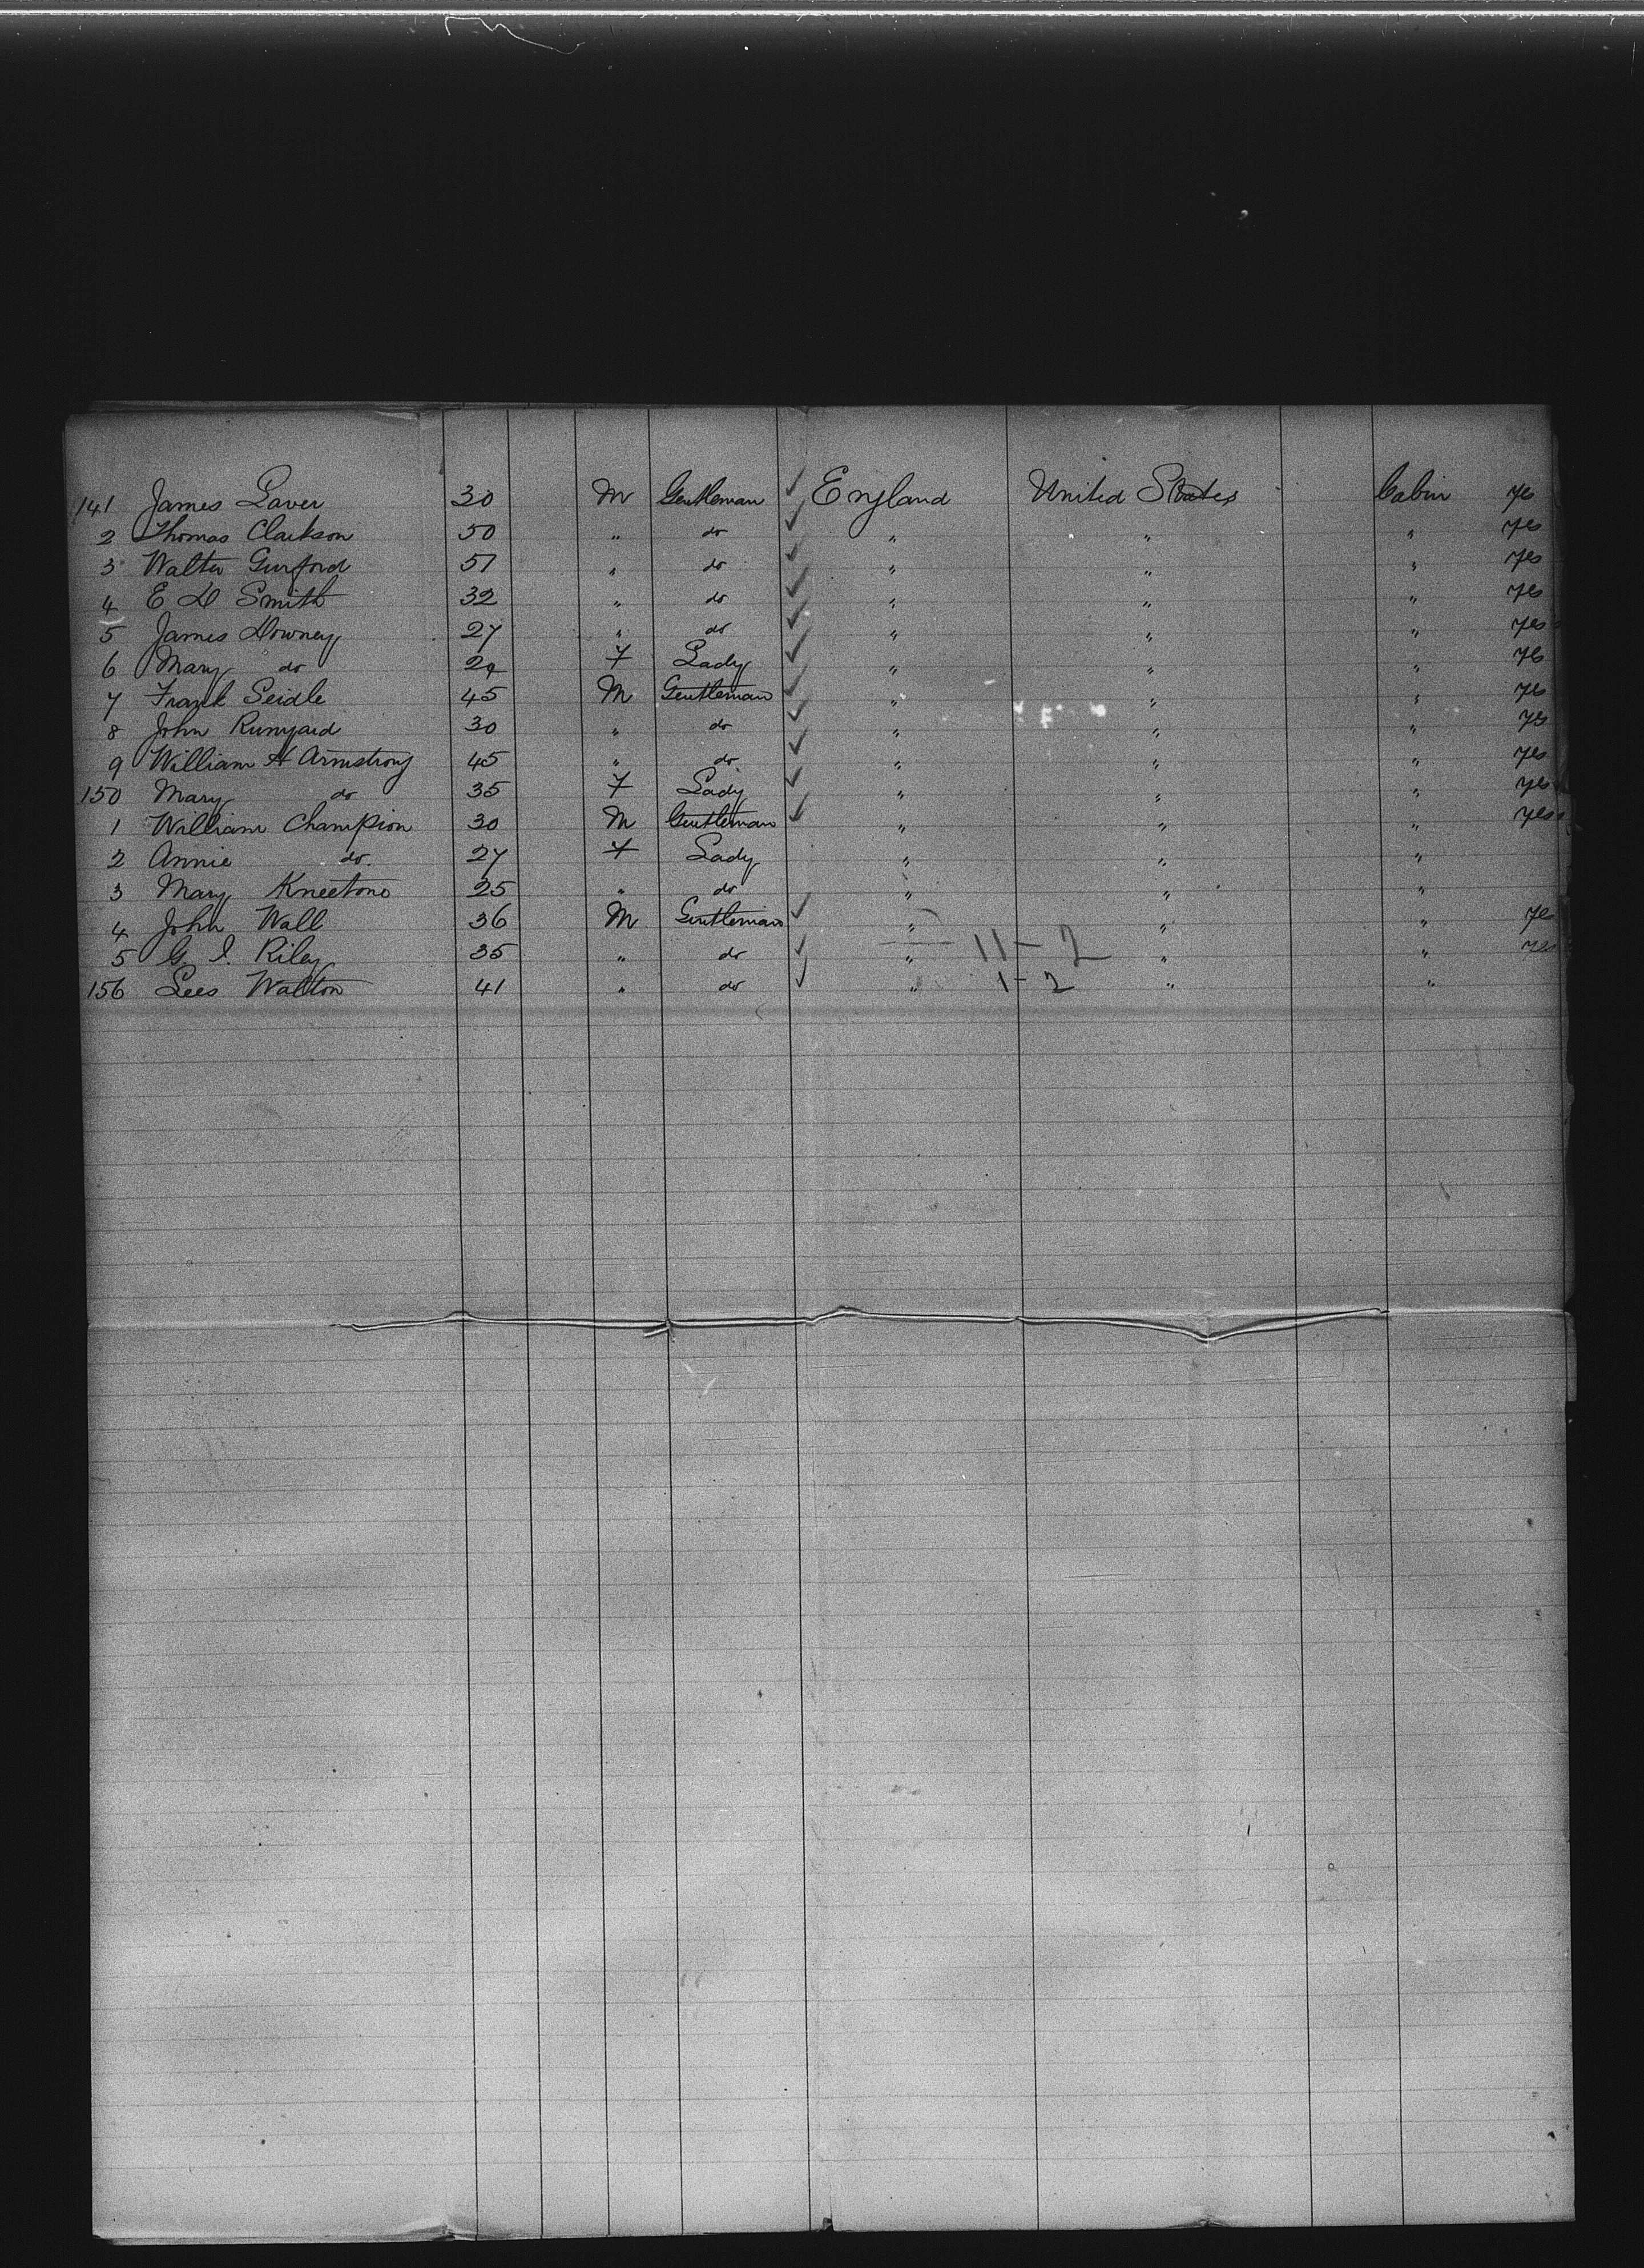 141 James Laver 30 M Gentleman ✓ England United States Cabin yes
2 Thomas Clarkson 50 " do ✓ " " " yes
3 Walter Gurford 51 " do ✓ " " " yes
4 E D Smith 32 " do ✓ " " " yes
5 James Downey 27 " do ✓ " " " yes
6 Mary do 29 F Lady ✓ " " " yes
7 Frank Seidle 45 M Gentleman ✓ " " " yes
8 John Runyard 30 " do ✓ " " " yes
9 William H Armstrong 45 " do ✓ " " " yes
150 Mary do 35 F Lady ✓ " " " yes
1 William Champion 30 M Gentleman ✓ " " " yes
2 Annie do. 27 F Lady " " "
3 Mary Kneetone 25 " do " " "
4 John Wall 36 M Gentleman ✓ " " " yes
5 G. I. Riley 35 " do ✓ " 11-2 " " yes
156 Lees Walton 41 " do ✓ " 1-2 " "